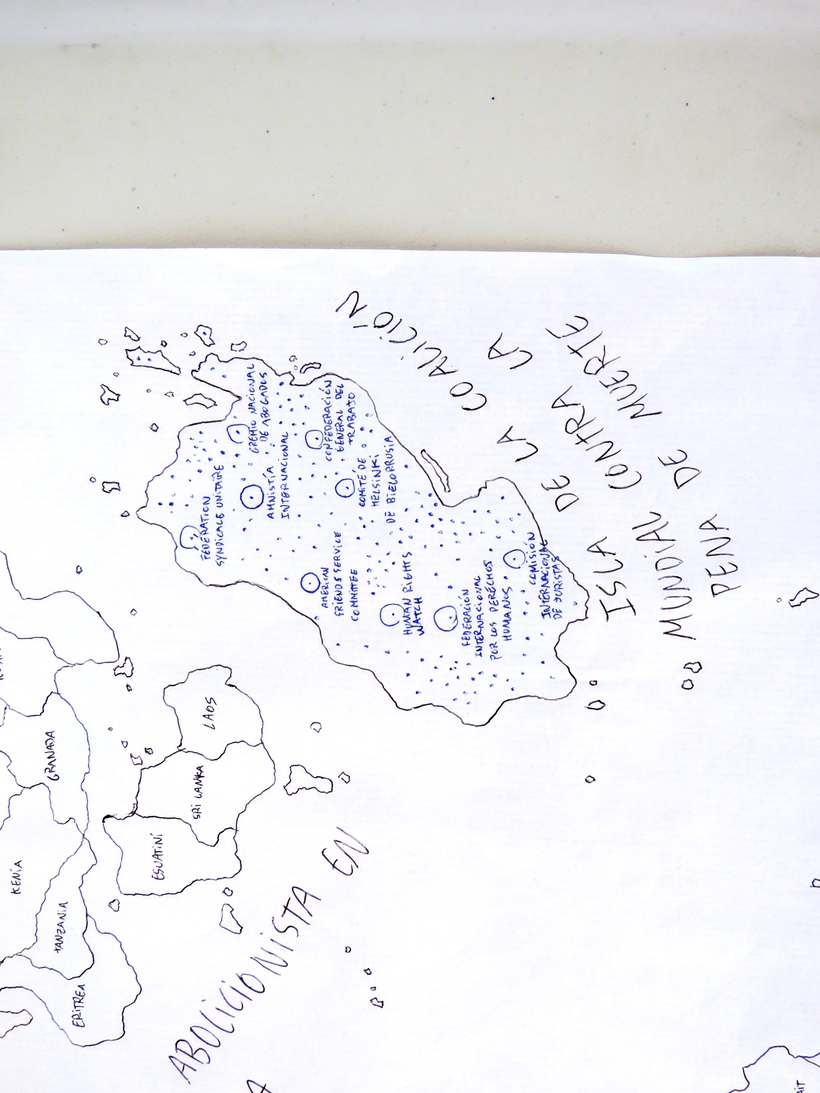 ISLA DE LA COALICIÓN
MUNDIAL CONTRA LA
PENA DE MUERTE
FEDERATION
SYNDICALE UNITAIRE
GREMIO NACIONAL
DE ABOGADOS
AMNISTÍA
INTERNACIONAL
CONFEDERACIÓN
GENERAL DEL
TRABAJO
COMITÉ DE
HELSINKI
DE BIELORRUSIA
AMERICAN
FRIENDS SERVICE
COMMITTEE
HUMAN RIGHTS
WATCH
FEDERACIÓN
INTERNACIONAL
POR LOS DERECHOS
HUMANOS
COMISIÓN
INTERNACIONAL
DE JURISTAS
GRANADA
LAOS
SRI LANKA
ESUATINI
KENIA
TANZANIA
ERITREA
ABOLICIONISTA EN